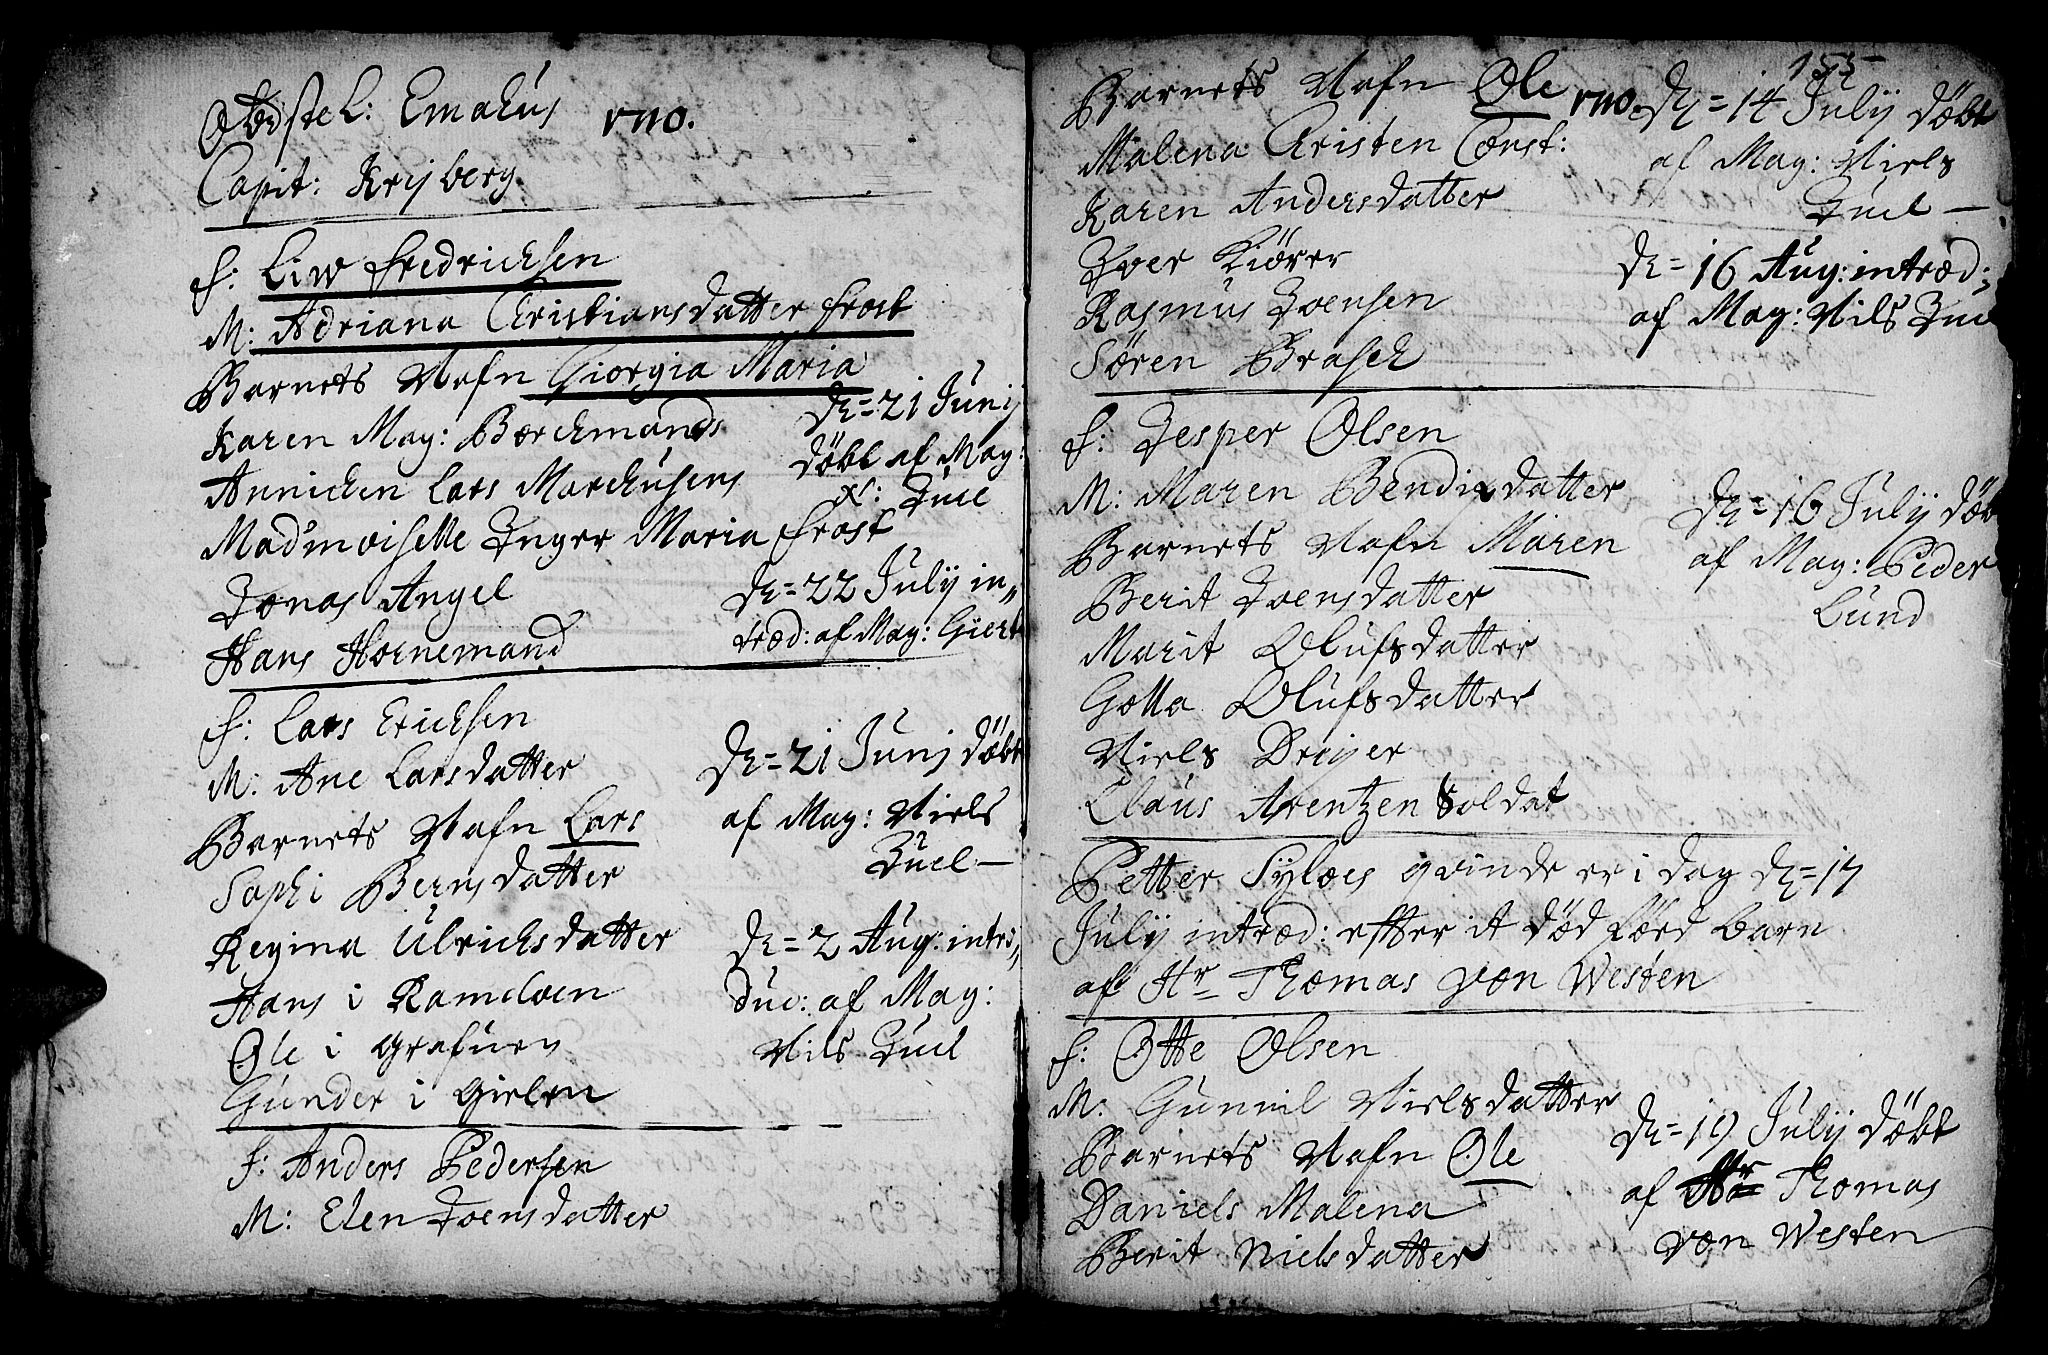 Obrste L: Emahus 1710.
Capit: Krijberg.
F: Liw Fredrichsen
M: Adriana Christiansdatter Frost
Barnets Nafn Giorgia Maria
Karen Mag: Borchmands
Annichen Lars Marchusens
Madmoiselle Inger Maria Frost
Jonas Angel
Hans Hornemand
D= 21 Junij
döbt af Mag:
N: Juel
D= 22 July in„
trod: af Mag: Giert
F: Lars Erichsen
M: Ane Larsdatter
Barnets Nafn Lars
Sophi Berensdatter
Regina Ulrichsdatter
Hans i Rameloen
Ole i
Gunder i Gielen
D= 21 Junj döbt
af Mag: Niels
Juel —
D= 2 Aug: intro„
duc: af Mag:
Nils Juel
F: Anders Pedersen
M: Elen Joensdatter
155
Barnets Nafn Ole 1710.
Malena Cristen Const:
Karen Andersdatter
Iver Kiörer
Rasmus Joensen
Sören Brasch
D= 14 July döbt
af Mag: Niels
Juel —
D= 16 Aug: introd:
af Mag: Nils Juel
F: Jesper Olsen
M: Maren Bendixdatter
Barnets Nafn Maren
Berit Joensdatter
Marit Olufsdatter
Golla Olufsdatter
Niels Dreyer
Claus Arentzen Soldat
D= 16 July döbt
af Mag: Peder
Lund
Petter qvinde er i dag D= 17
July introd: effter it död föed barn
af Hr Thomas von Westen
F: Otte Olsen
M: Gunnil Nielsdatter
Barnets Nafn Ole
Daniels Malena
Berit Nielsdatter
D= 19 July döbt
af Hr Thomas
von Westen